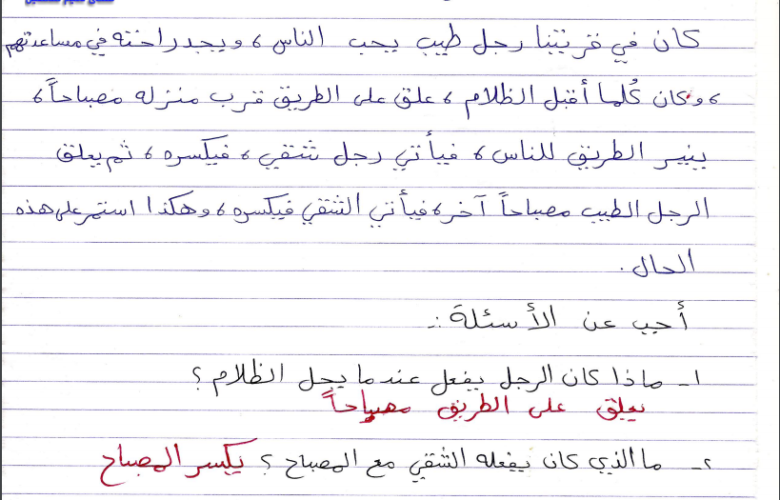 كان في قريتنا رجل طيب يحب الناس، ويجد راحته في مساعدتهم
، وكان كُلما أقبل الظلام، علق على الطريق قرب منزله مصباحاً،
ينير الطريق للناس، فيأتي رجل شقي، فيكسره، ثم يعلق
الرجل الطيب مصباحاً آخر، فيأتي الشقي فيكسره، وهكذا استمر على هذه
الحال.
أجب عن الأسئلة :-
١- ماذا كان الرجل يفعل عندما يحل الظلام؟
يعلق على الطريق مصباحاً
٢- ما الذي كان يفعله الشقي مع المصباح؟ يكسر المصباح